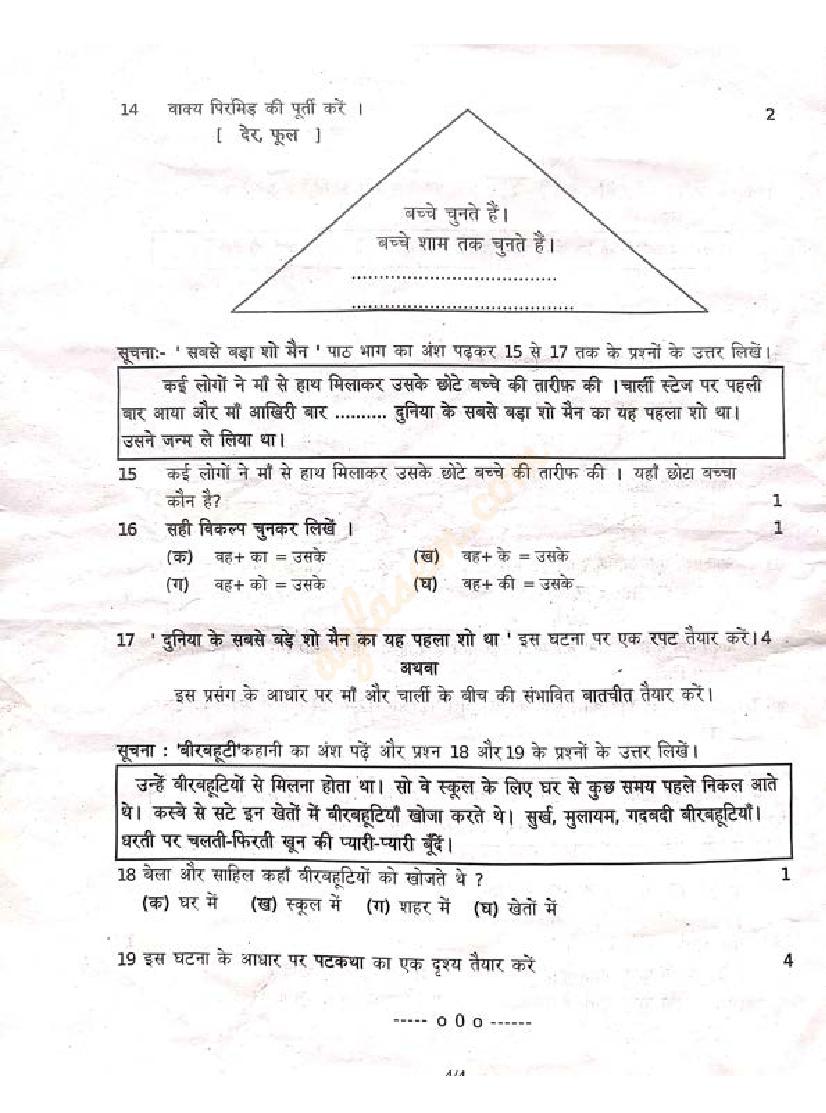 14 वाक्य पिरमिड़ की पूर्ती करें । 2
[ देर, फूल ]
बच्चे चुनते हैं।
बच्चे शाम तक चुनते हैं।
.......................................
..........................................
सूचनाः- ' सबसे बड़ा शो मैन ' पाठ भाग का अंश पढ़कर 15 से 17 तक के प्रश्नों के उत्तर लिखें।
कई लोगों ने माँ से हाथ मिलाकर उसके छोटे बच्चे की तारीफ़ की ।चार्ली स्टेज पर पहली
बार आया और माँ आखिरी बार .......... दुनिया के सबसे बड़ा शो मैन का यह पहला शो था।
उसने जन्म ले लिया था।
15 कई लोगों ने माँ से हाथ मिलाकर उसके छोटे बच्चे की तारीफ की । यहाँ छोटा बच्चा
कौन है? 1
16 सही विकल्प चुनकर लिखें । 1
(क) वह+ का = उसके (ख) वह+ के = उसके
(ग) वह+ को = उसके (घ) वह+ की = उसके
17 ' दुनिया के सबसे बड़े शो मैन का यह पहला शो था ' इस घटना पर एक रपट तैयार करें।4
अथवा
इस प्रसंग के आधार पर माँ और चार्ली के बीच की संभावित बातचीत तैयार करें।
सूचना : 'बीरबहूटी'कहानी का अंश पढ़ें और प्रश्न 18 और 19 के प्रश्नों के उत्तर लिखें।
उन्हें बीरबहूटियों से मिलना होता था। सो वे स्कूल के लिए घर से कुछ समय पहले निकल आते
थे। कस्बे से सटे इन खेतों में बीरबहूटियाँ खोजा करते थे। सुर्ख, मुलायम, गदबदी बीरबहूटियाँ।
धरती पर चलती-फिरती खून की प्यारी-प्यारी बूँदें।
18 बेला और साहिल कहाँ बीरबहूटियों को खोजते थे ? 1
(क) घर में (ख) स्कूल में (ग) शहर में (घ) खेतों में
19 इस घटना के आधार पर पटकथा का एक दृश्य तैयार करें 4
----- o 0 o ------
4/4